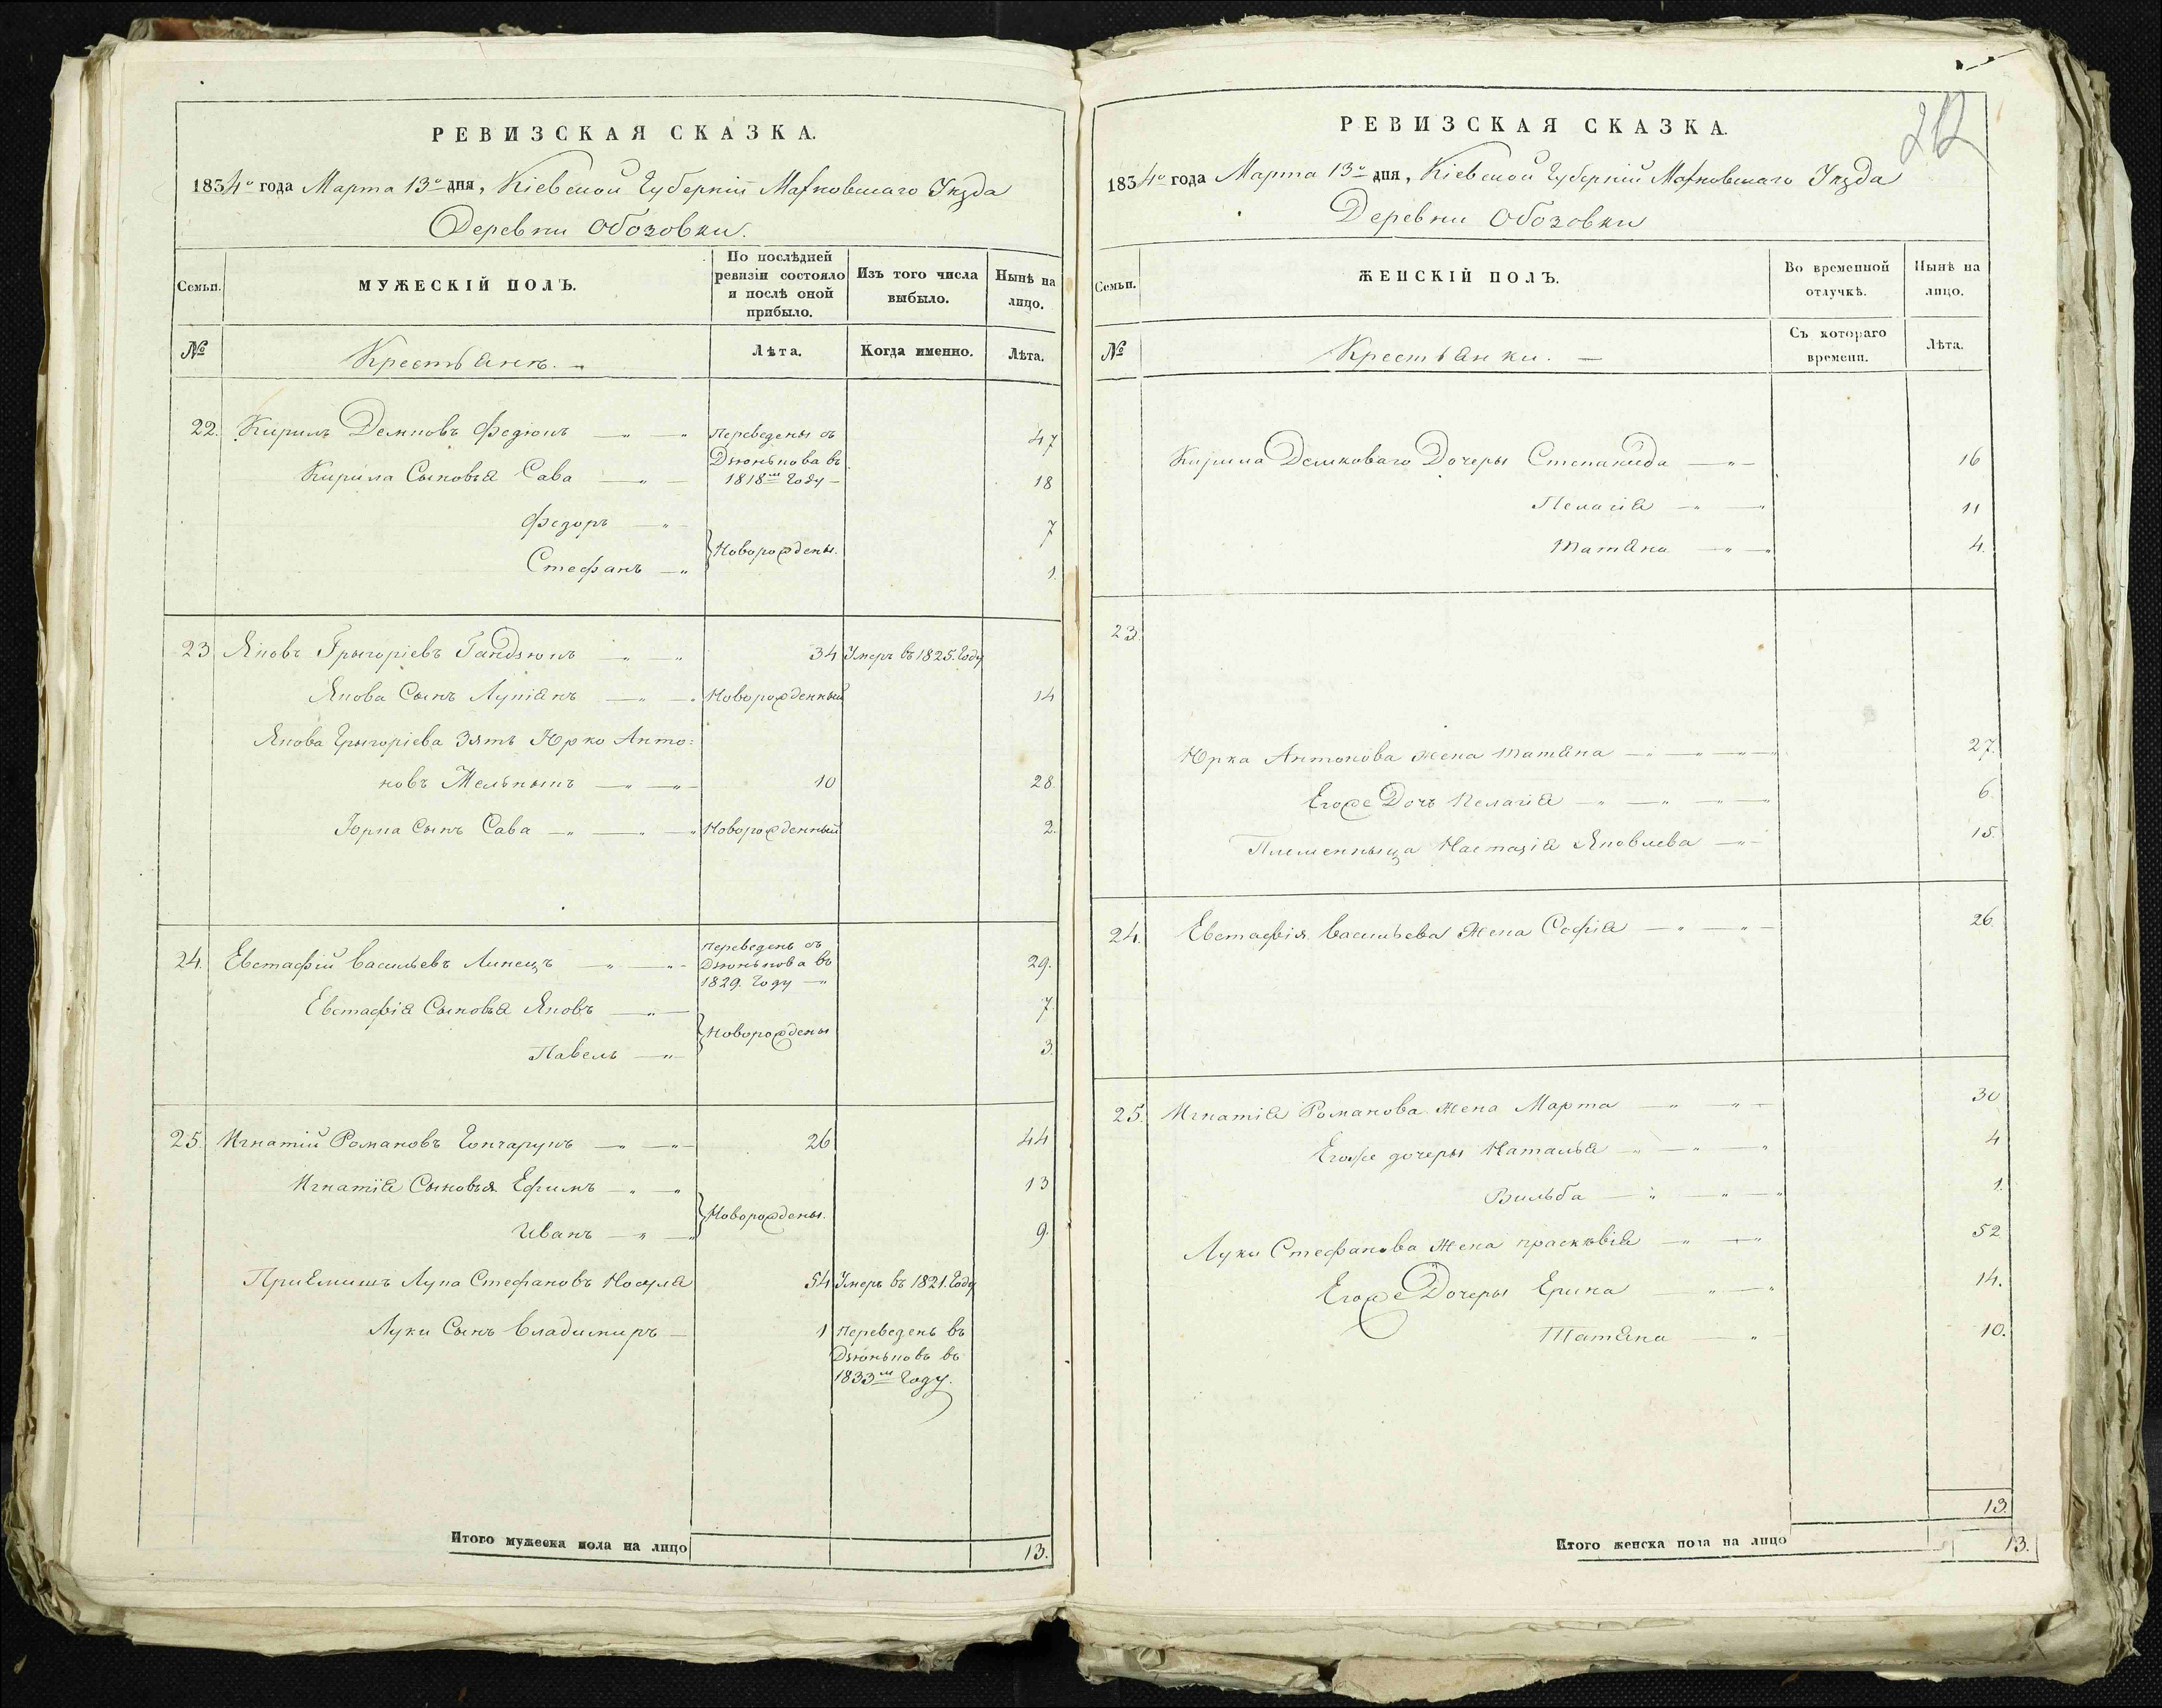 РЕВИЗСКАЯ СКАЗКА.
1834го года Марта 13го дня, Кіевской Губерніи Махновскаго Уѣзда
Деревни Обозовки.
Семьи.
МУЖЕСКІЙ ПОЛЪ.
По послѣдней ревизіи состояло и послѣ оной прибыло.
Изъ того числа выбыло.
Нынѣ на лицо.
№
Крестьянъ. —
Лѣта.
Когда именно.
Лѣта.
22. Кирилъ Демковъ Федюкъ — Переведены съ 47
Дзюнькова въ
Кирила Сыновья Сава — 1818м Году — 18
Федоръ — 7
Новорождены.
Стефанъ — 1.
23 Яковъ Григоріевъ Гандзюкъ — 34 Умеръ въ 1825. Году
Якова Сынъ Лукіянъ — Новорожденный 14
Якова Григоріева Зять Юрко Анто:
новъ Мельныкъ — 10 28.
Юрка Сынъ Сава — Новорожденный 2.
24. Евстафій Васильевъ Липецъ — Переведенъ съ Дзюнькова въ 1829. Году — 29.
Евстафія Сыновья Яковъ — 7.
Новорождены
Павелъ — 3.
25. Игнатій Романовъ Гончарукъ — 26 44
Игнатія Сыновья Ефимъ — 13
Новорождены.
Иванъ — 9.
Приёмышъ Лука Стефановъ 54 Умеръ въ 1821. Году
Луки Сынъ Владимиръ — 1 Переведенъ въ
Дзюньковъ въ
1833м Году.
Итого мужеска пола на лицо 13.
212
РЕВИЗСКАЯ СКАЗКА.
1834го года Марта 13го дня, Кіевской Губерніи Махновскаго Уѣзда
Деревни Обозовки
Семьи.
ЖЕНСКІЙ ПОЛЪ.
Во временной отлучкѣ.
Нынѣ на лицо.
№
Крестьянки. —
Съ котораго времени.
Лѣта.
Кирила Демковаго Дочеры Степанида — 16
Пелагія — 11
Татяна — 4.
23.
Юрка Антонова жена Татяна — 27.
Егоже Дочь Пелагія — 6.
Племенныца Настазія Яковлева — 15.
24. Евстафія Васильева Жена Софія — 26
25. Игнатія Романова Жена Марта — 30
Егоже дочеры Наталья — 4
1.
Луки Стефанова Жена Прасковія — 52
Егоже Дочеры Ерина — 14.
Татяна — 10.
13.
Итого женска пола на лицо 13.